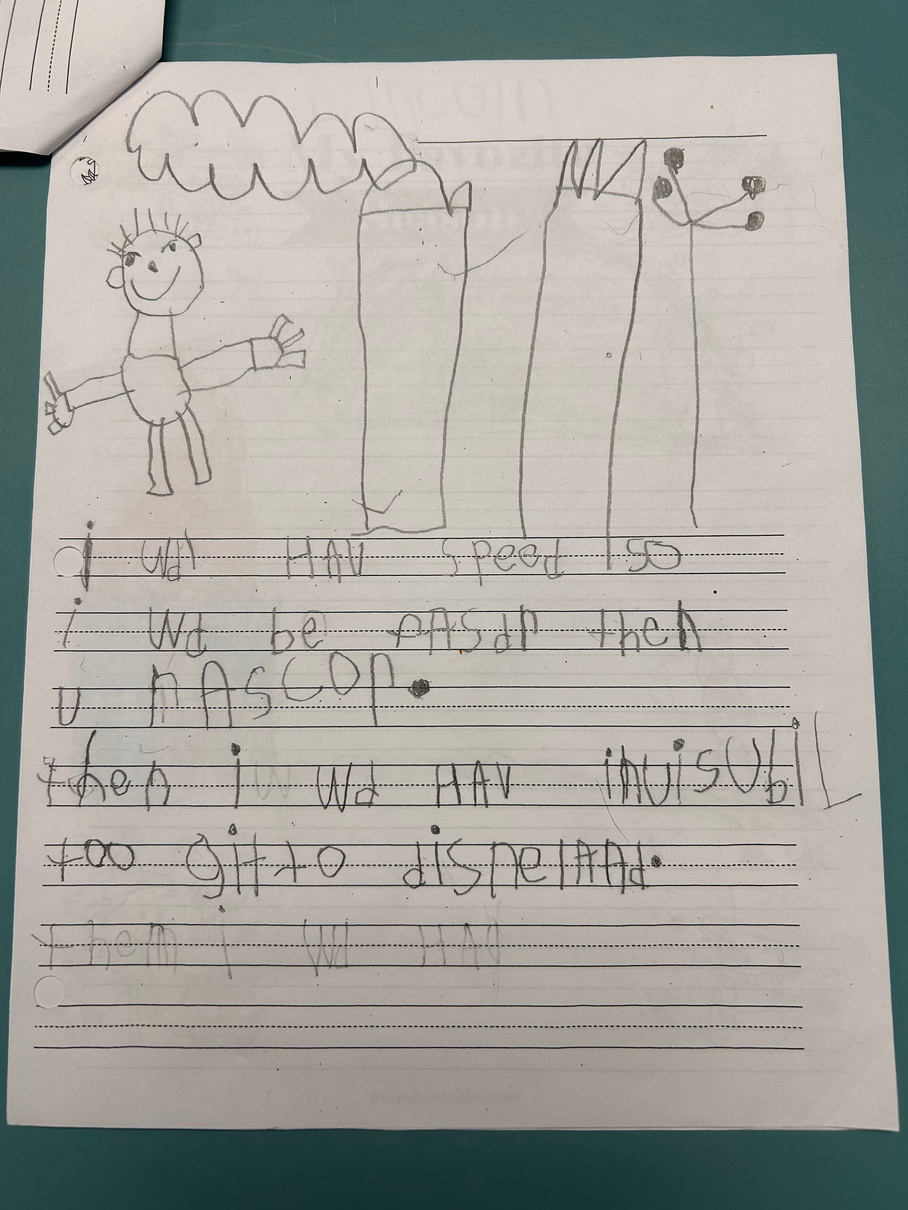 i Wd HAV speed so
i Wd be fASdr then
u NASCOR.
then i Wd HAV invisUbiL
too git to disnelANd.
them i Wd HAV